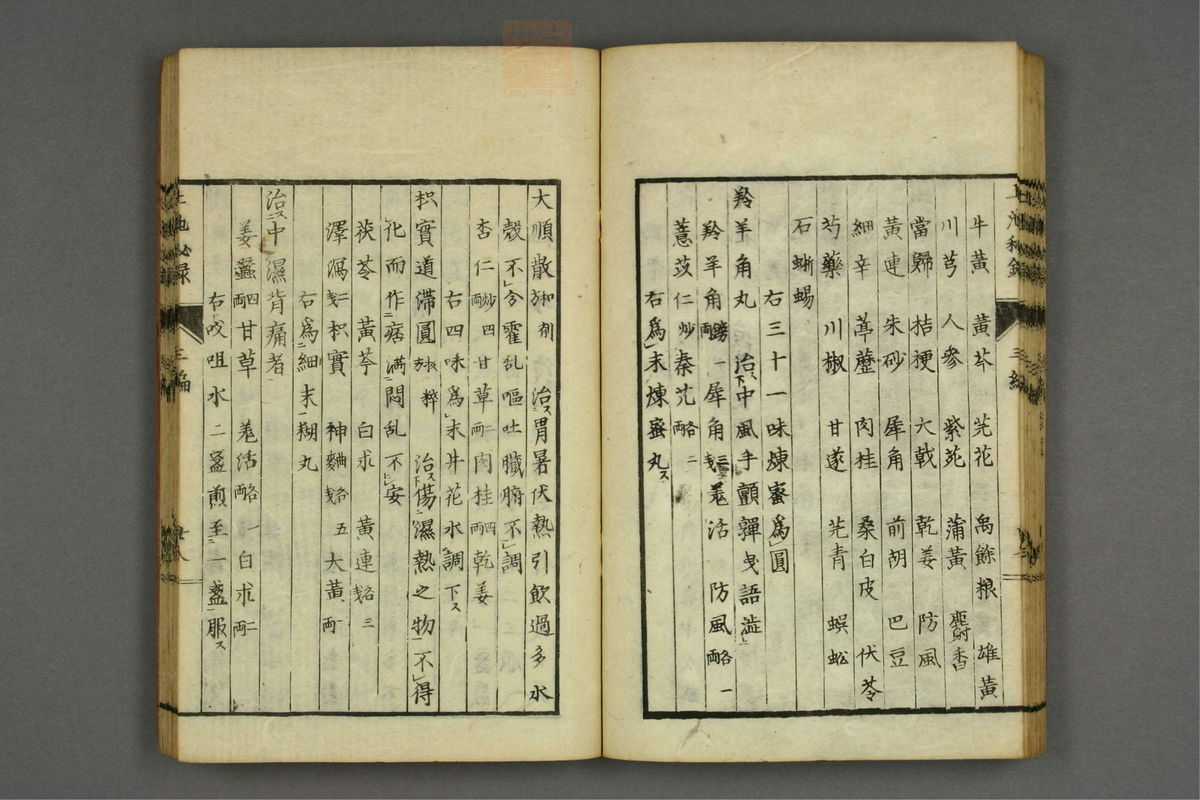 牛黄 黄芩 芫花 禹餘粮 雄黄
川芎 人參 紫菀 蒲黄 麝香
當歸 桔梗 大戟 乾姜 防風
黄連 朱砂 犀角 前胡 巴豆
細辛 葶藶 肉桂 桑白皮 伏苓
芍藥 川椒 甘遂 芫青 蜈蚣
石蜥蜴
右三十一味煉蜜爲圓
羚羊角丸 治中風手顫嚲曳語澁
羚羊角 一両 犀角 三 羗活 防風 各一両
薏苡仁 炒 秦艽 各二両
右爲末煉蜜丸ス
大順散 和剤 治冐暑伏熱引飲過多水
穀不分霍乱嘔吐臓腑不調
杏仁 炒四両 甘草 一両 肉桂 四両 乾姜
右四味爲末井花水調下ス
枳實道滯圓 治傷濕熱之物不得
化而作痞滿悶乱不安
茯苓 黄芩 白朮 黄連 各三
澤瀉 二 枳實 神麯 各五 大黄 一両
右爲細末糊丸
治中濕背痛者
姜蠶 四両 甘草 羗活 各一両 白朮 二両
右㕮咀水二盞煎至一盞服ス
三編
廿八